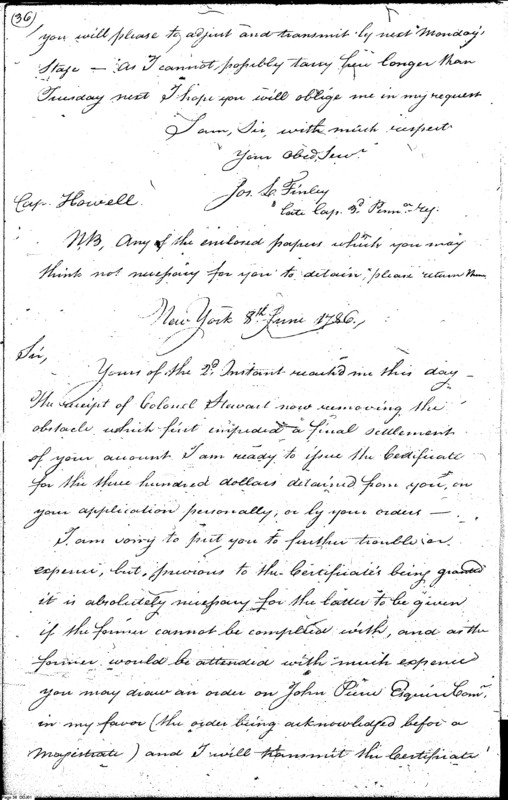 (36)
you will please to adjust and transmit by next Monday's
Stage — As I cannot possibly tarry here longer than
Tuesday next I hope you will oblige me in my request
I am, Sir, with much respect
Your Obed. Serv.
Jos. L. Finley
Cap. Howell. late Cap. 3d. Penna. reg.
NB, Any of the enclosed papers which you may
think not necessary for you to detain, please return them
New York 8th June 1786,
Sir,
Yours of the 2d. Instant reach'd me this day —
The receipt of Colonel Stewart now removing the
obstacle which first impeded a final settlement
of your account I am ready to issue the Certificate
for the three hundred dollars detained from you, on
your application personally, or by your orders —
I am sorry to put you to further trouble or
expence, but, previous to the Certificate's being granted
it is absolutely necessary for the latter to be given
if the former cannot be complied with, and as the
former would be attended with much expence
you may draw an order on John Pierce Esquire Comr.
in my favor (the order being acknowledged before a
Magistrate) and I will transmit the Certificate